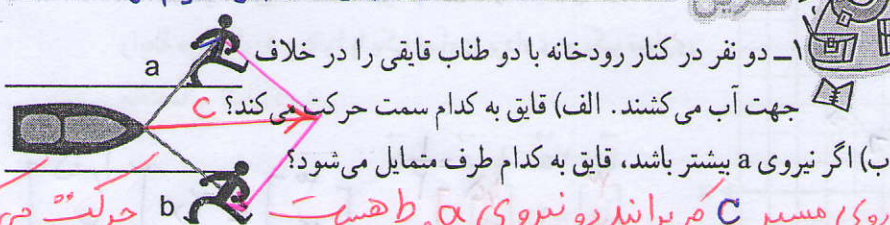 تمرین
۱ــ دو نفر در کنار رودخانه با دو طناب قایقی را در خلاف
a
جهت آب می‌کشند. الف) قایق به کدام سمت حرکت می‌کند؟
C
ب) اگر نیروی a بیشتر باشد، قایق به کدام طرف متمایل می‌شود؟
b
روی مسیر C که برآیند دو نیروی a و b هست حرکت